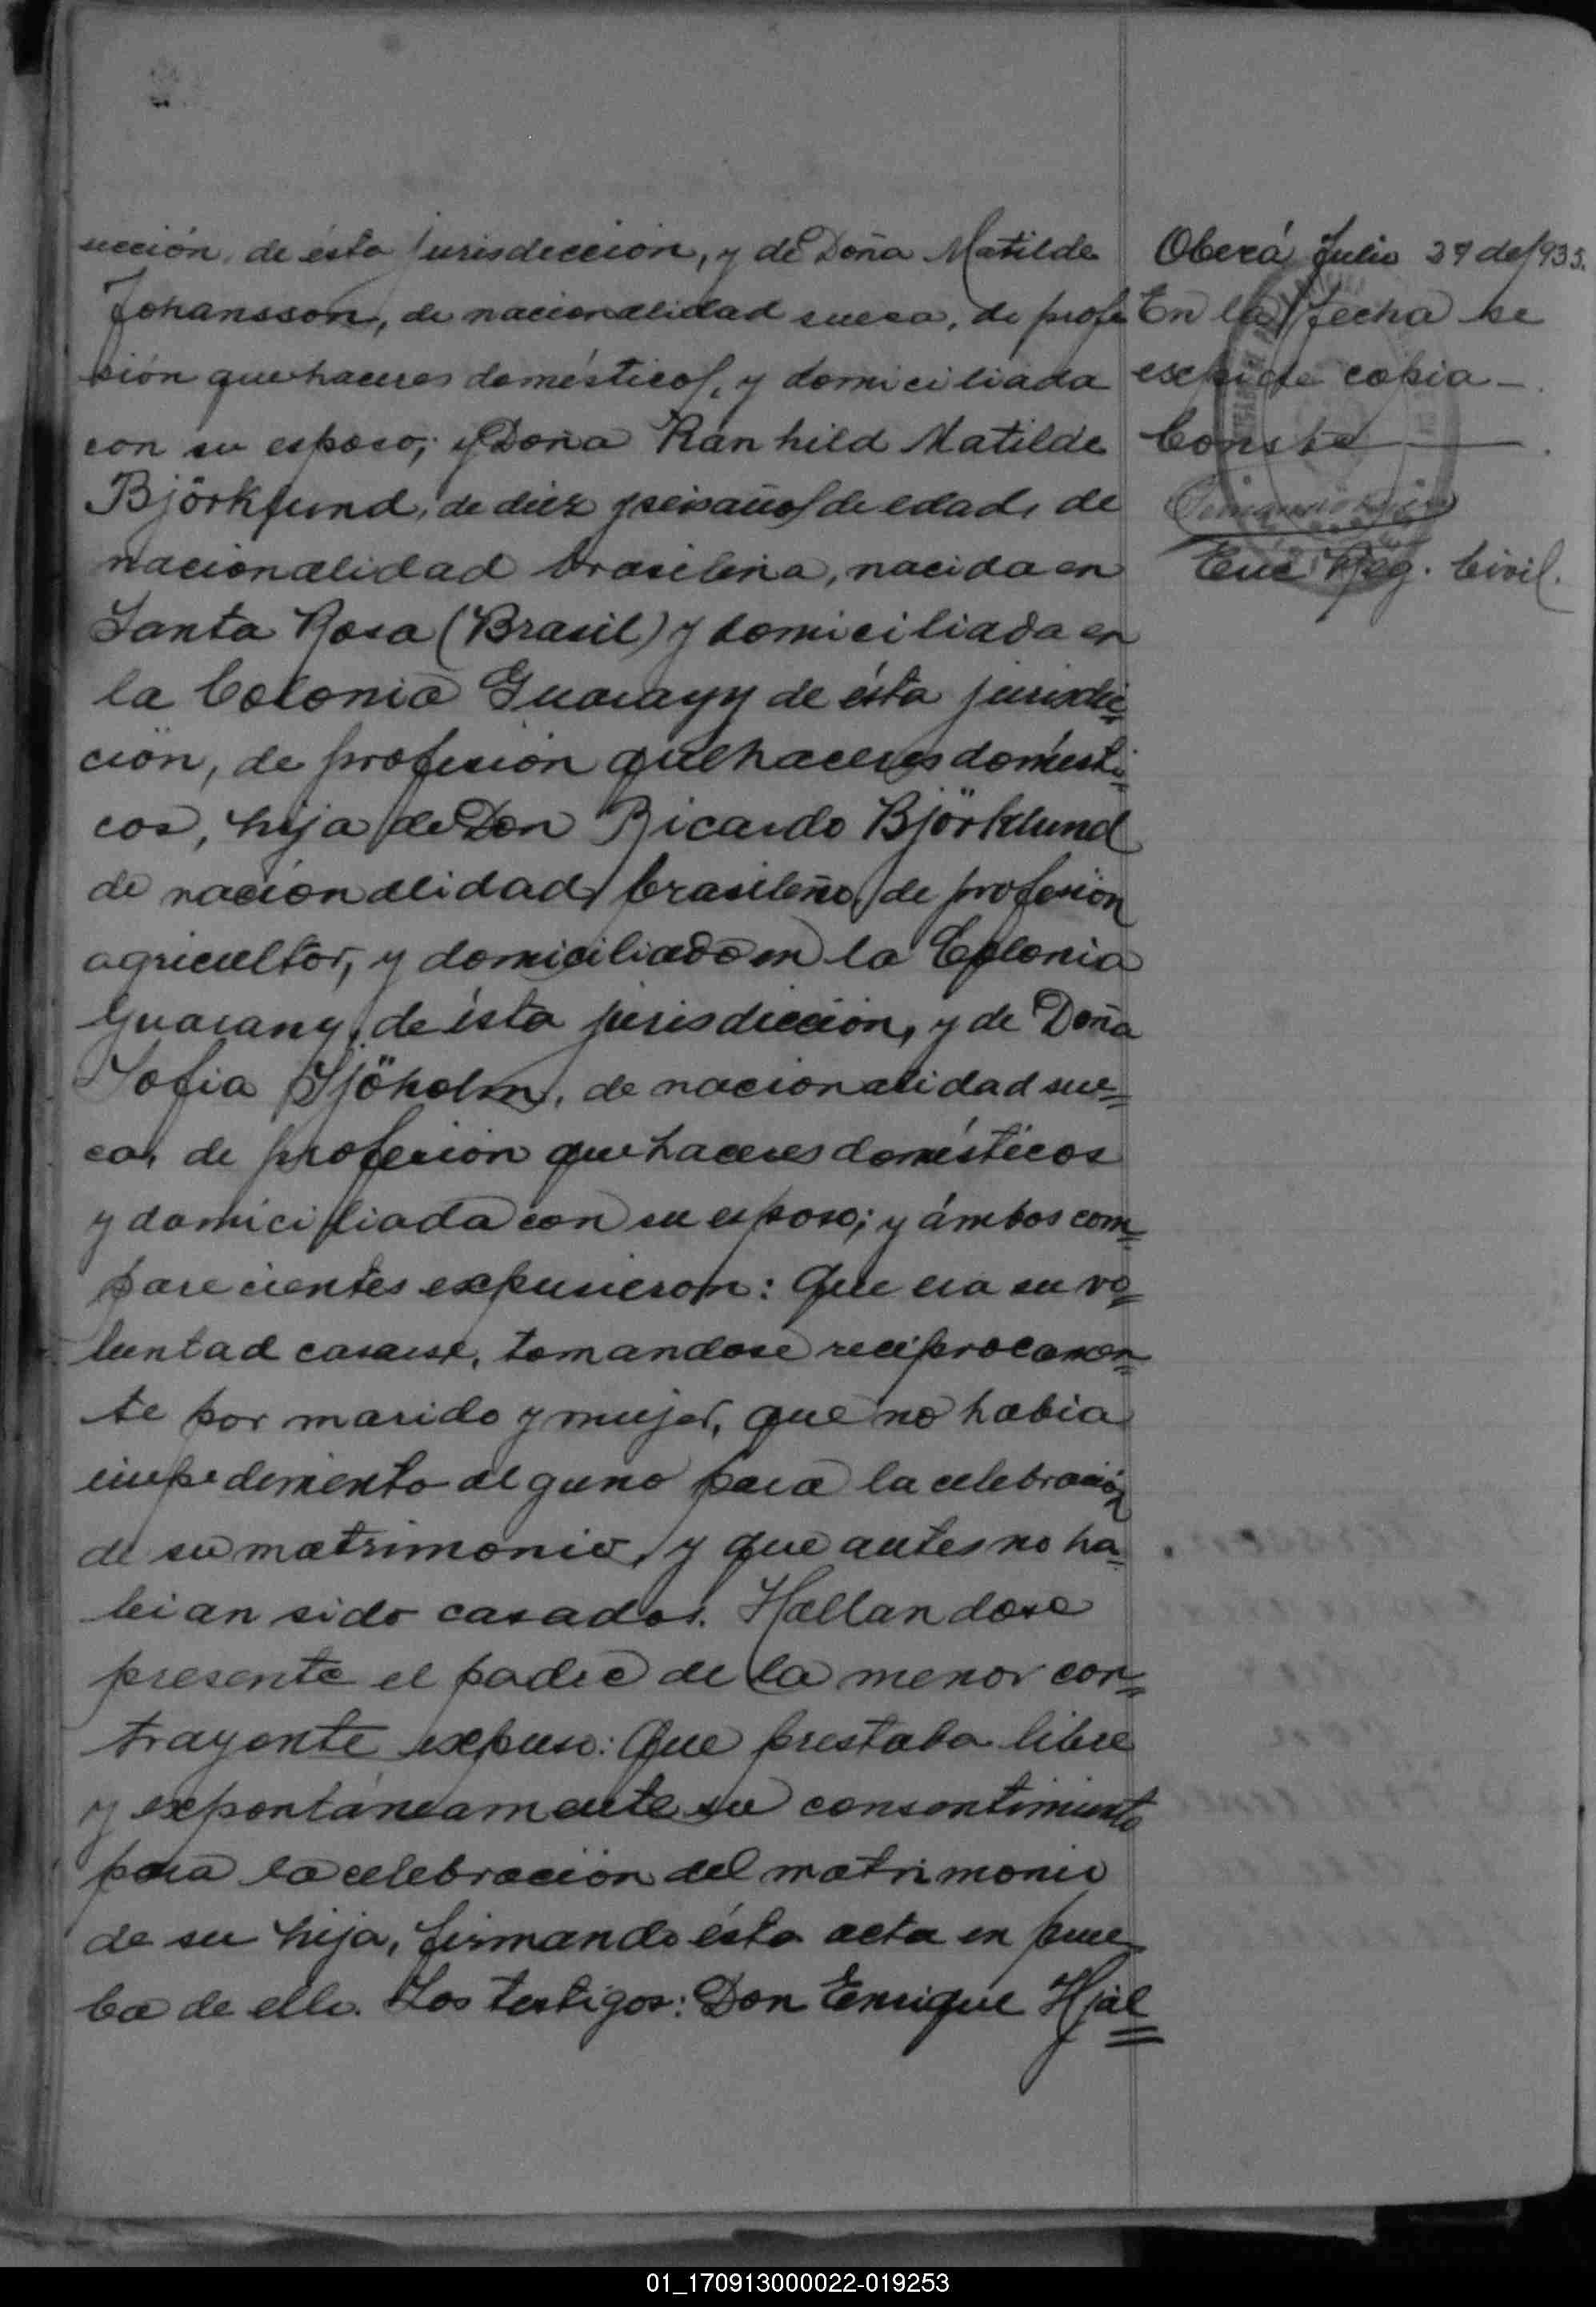 sección, de ésta jurisdicción, y de Doña Matilde
Johansson, de nacionalidad sueca, de profe
sión quehaceres domésticos, y domiciliada
con su esposo; y Doña Ranhild Matilde
Björklund, de diez y seis años de edad, de
nacionalidad brasileña, nacida en
Santa Rosa (Brasil) y domiciliada en
la Colonia Guarany de ésta jurisdic=
ción, de profesión quehaceres domésti=
cos, hija de Don Ricardo Björklund
de nacionalidad brasileño, de profesión
agricultor, y domiciliado en la Colonia
Guarany, de ésta jurisdicción, y de Doña
Sofia Sjöholm, de nacionalidad sue=
ca, de profesión quehaceres domésticos
y domiciliada con su esposo; y ámbos com=
parecientes expusieron: Que era su vo=
luntad casarse, tomandose reciprocamen=
te por marido y mujer, que no habia
impedimento alguno para la celebración
de su matrimonio, y que antes no ha=
bian sido casados. Hallandose
presente el padre de la menor con=
trayente expuso: Que prestaba libre
y expontáneamente su consentimiento
para la celebración del matrimonio
de su hija, firmando ésta acta en prue
ba de ello. Los testigos: Don Enrique Hjal=
Oberá Julio 27 de/935.
En la fecha se
expide copia -
Conste
Enc. Reg. Civil.
01_170913000022-019253